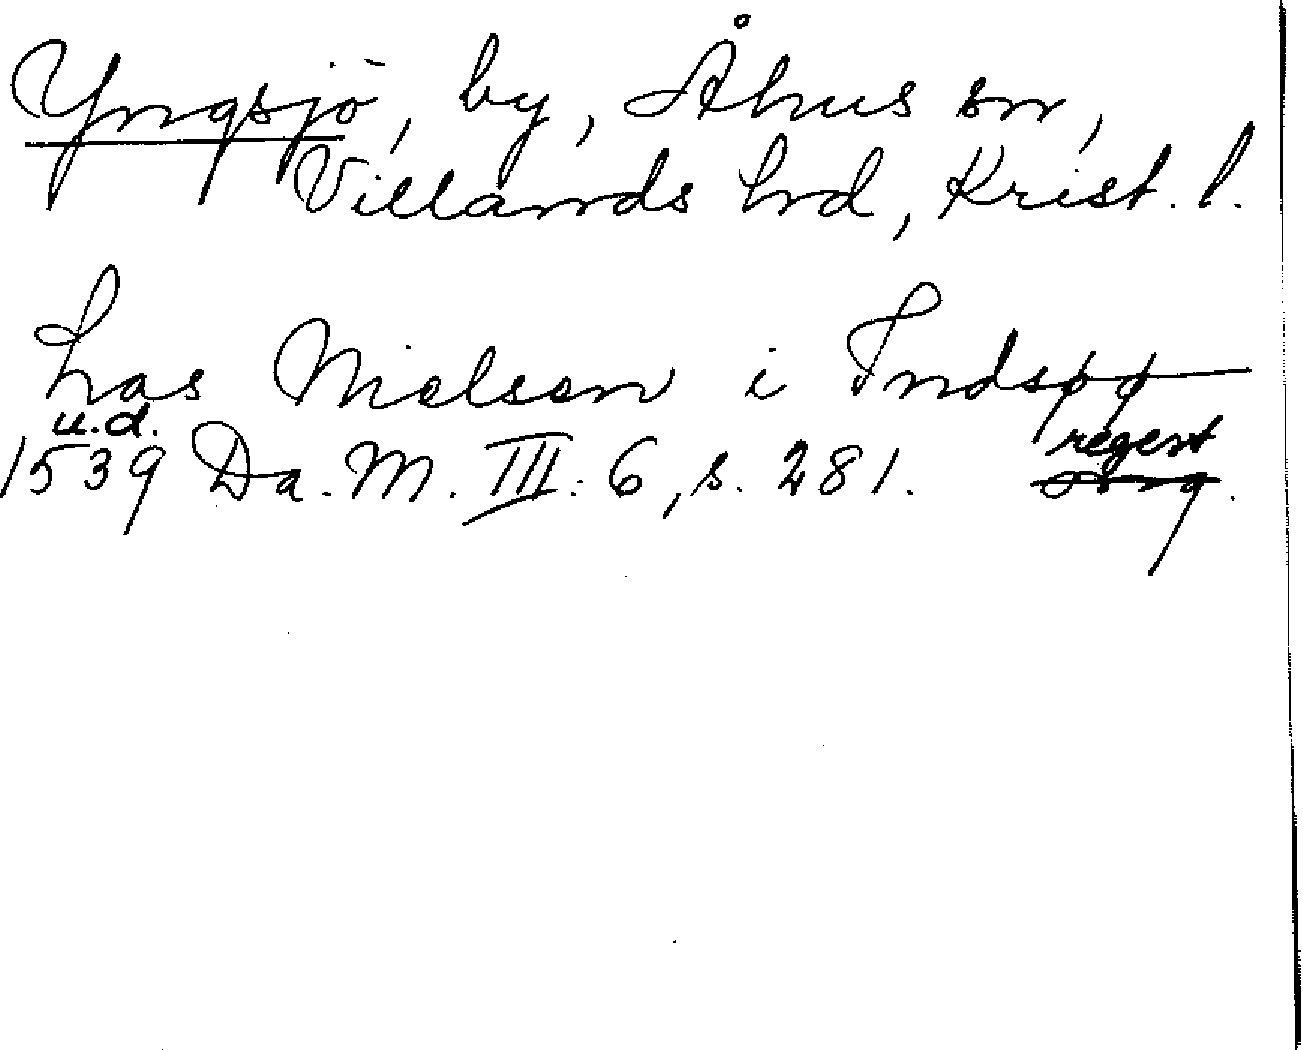 Yngsjö, by, Åhus sn,
Villands hd, Krist. l.
Las Nielsen i Indspø
u.d.
1539 Da. M. III: 6, s. 281. regest